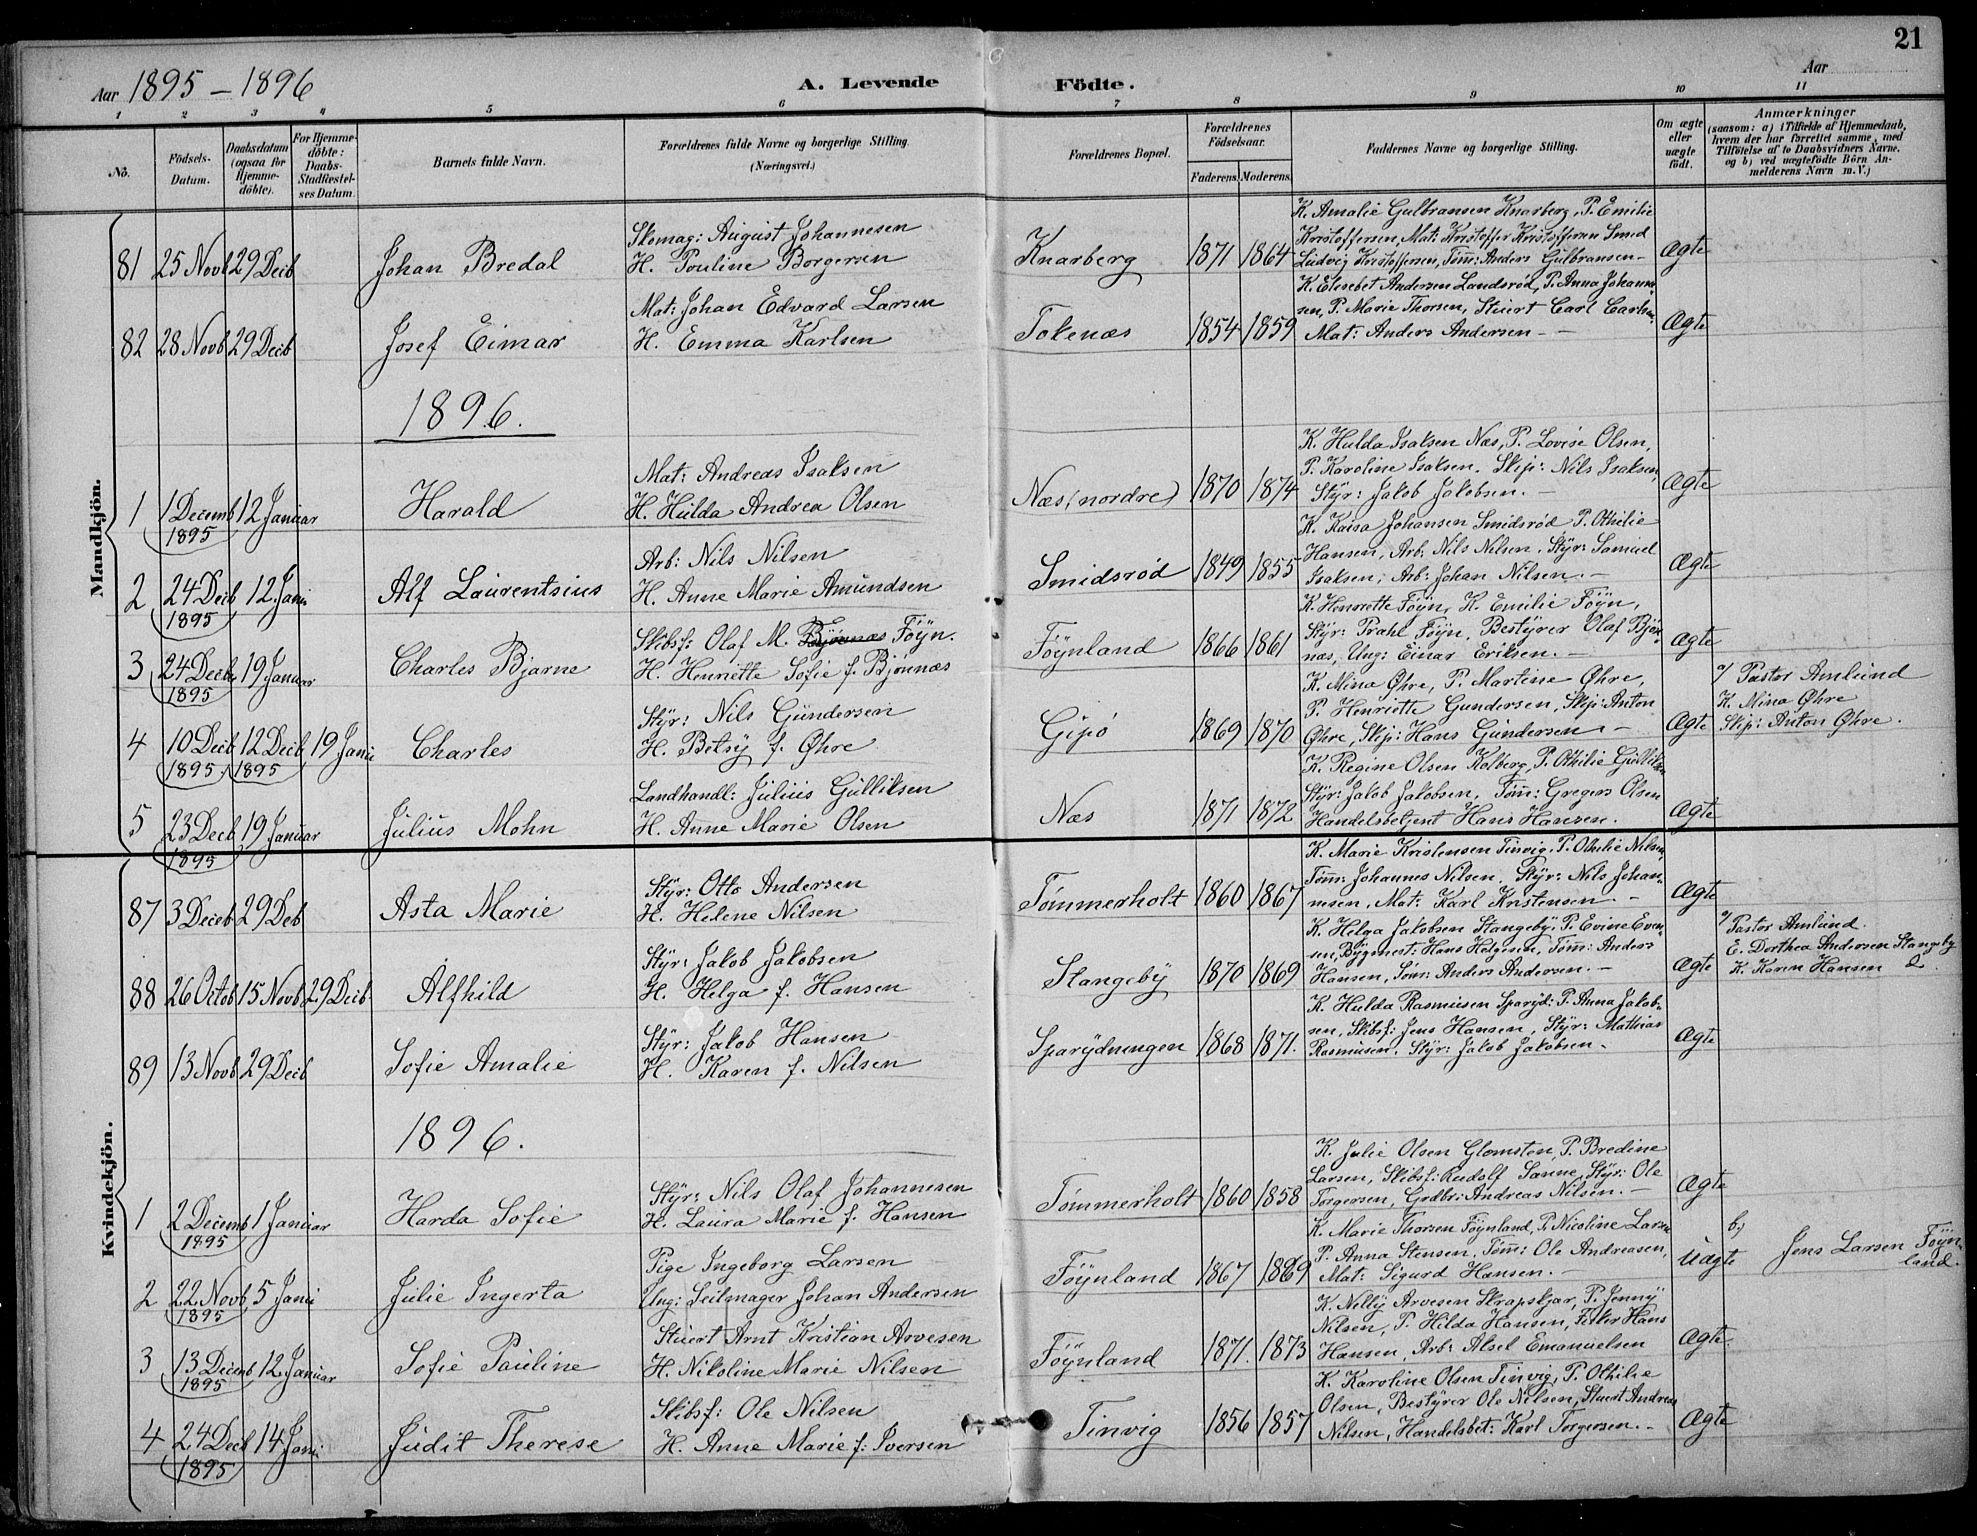 21
Aar 1895 – 1896 A. Levende Födte. Aar
1 2 3 4 5 6 7 8 9 10 11
No. Födsels-Datum. Daabsdatum (ogsaa for Hjemme-döbte). For Hjemme-döbte: Daabs-Stadfæstel-ses Datum. Barnets fulde Navn. Forældrenes fulde Navne og borgerlige Stilling. (Næringsvei.) Forældrenes Bopæl. Forældrenes Födselsaar. Faderens. Moderens. Faddernes Navne og borgerlige Stilling. Om ægte eller uægte födt. Anmærkninger (saasom: a) i Tilfælde af Hjemmedaab, hvem der har forrettet samme, med Tilföielse af to Daabsvidners Navne. og b) ved uægtefödte Börn An-melderens Navn m.V.)
Mandkjön.
K. Amalie Gulbransen Knarberg, P. Emilie
Skomag: August Johannesen
Kristoffersen, Mat: Kristoffer Kristoffersen Smed
81 25 Novb 29 Decb Johan Bredal H. Pouline Borgersen Knarberg 1871 1864 Ludvig Kristoffersen, Tøm: Anders Gulbransen – Ægte
K. Elisebet Andersen Landsrød, P. Anna Johann-
Mat: Johan Edvard Larsen
sen, P. Marie Thorsen, Stuert Carl Carlsen
82 28 Novb 29 Decb Josef Eimar H. Emma Karlsen Tokenæs 1854 1859 Mat: Anders Andersen – – Ægte
1896.
K. Hulda Isaksen Næs, P. Lovise Olsen,
Mat: Andreas Isaksen
P. Karoline Isaksen. Skip: Nils Isaksen,
1 1 Decemb 12 Januar Harald H. Hulda Andrea Olsen Næs (nordre) 1870 1874 Styr: Jakob Jakobsen. – Ægte
1895
K. Kaisa Johansen Smidsrød P. Othilie
Arb: Nils Nilsen
Hansen, Arb: Nils Nilsen. Styr: Samuel
2 24 Decb 12 Jani Alf Laurentsius H. Anne Marie Amundsen Smidsrød 1849 1855 Isaksen, Arb: Johan Nilsen. – Ægte
1895
K. Henrette Føyn, K. Emilie Føyn,
Skibsf: Olaf M. Føyn.
Styr: Prahl Føyn, Bestyrer Olaf Bjør-
3 24 Decb 19 Januar Charles Bjarne H. Henriette Sofie f. Bjønnæs Føynland 1866 1861 næs, Ung: Einar Eriksen. – Ægte
1895
K. Mina Øhre, P. Martine Øhre, a/ Pastor Amlund
Styr: Nils Gundersen
P. Henriette Gundersen, Skip: Anton K. Mina Øhre
4 10 Decb 12 Decb 19 Jani Charles H. Betsy f. Øhre Gipø 1869 1870 Øhre, Skip: Hans Gundersen. – Ægte Skip: Anton Øhre.
1895 1895
K. Regine Olsen Kolberg, P. Othilie Gulliksen
Landhandl: Julius Gulliksen
Styr: Jakob Jakobsen, Tøm: Gregers Olsen
5 23 Decb 19 Januar Julius Mohn H. Anne Marie Olsen Næs 1871 1872 Handelsbetjent Hans Hansen. Ægte
1895
Kvindekjön.
K. Marie Kristensen Tinvig, P. Othilie Nilsen,
Styr: Otto Andersen
Tøm: Johannes Nilsen. Styr: Nils Johan-
87 3 Deceb 29 Deb Asta Marie H. Helene Nilsen Tømmerholt 1860 1867 nesen, Mat: Karl Kristensen. – Ægte
K. Helga Jakobsen Stangeby, P. Evine Even- a/ Pastor Amlund.
Styr: Jakob Jakobsen
sen, Bygmest: Hans Helgesen, Tøm: Anders E. Dorthea Andersen Stangeby
88 26 Octob 15 Novb 29 Decb Alfhild H. Helga f. Hansen Stangeby 1870 1869 Hansen, Tøm: Anders Andersen. – Ægte K. Karen Hansen
K. Hulda Rasmusen Sparyd: P. Anna Jakob-
Styr: Jakob Hansen
sen, Skibsf: Jens Hansen, Styr: Mathias
89 13 Novb 29 Decb Sofie Amalie H. Karen f. Nilsen Sparydningen 1868 1871. Rasmusen. Styr: Jakob Jakobsen. Ægte
1896.
K. Julie Olsen Glomsten, P. Bredine
Styr: Nils Olaf Johannesen
Larsen, Skibsf: Rudolf Sanne, Styr: Ole
1 2 Decemb 1 Januar Harda Sofie H. Laura Marie f. Hansen Tømmerholt 1860 1858 Torgersen, Grdbr: Andreas Nilsen. – Ægte
1895
K. Marie Thorsen Føynland, P. Nicoline Larsen b)
Pige Ingeborg Larsen
P. Anna Stensen, Tøm: Ole Andreasen, Jens Larsen Føyn-
2 22 Novb 5 Jani Julie Ingerta Ung: Seilmager Johan Andersen Føynland 1867 1869 Mat: Sigurd Hansen. – Uægte land.
1895
K. Nelly Arvesen Skrapskjær, P. Jenny
Stuert Arnt Kristian Arvesen
Nilsen, P. Hilda Hansen, Fisker Hans
3 13 Decemb 12 Januar Sofie Pauline H. Nikoline Marie Nilsen Føynland 1871. 1873 Hansen, Arb: Aksel Emanuelsen Ægte.
1895
K. Karoline Olsen Tinvig, P. Othilie
Skibsf: Ole Nilsen
Olsen, Bestyrer Ole Nilsen, Stuert Andreas
4 24 Decb 14 Jani Judit Therese H. Anne Marie f. Iversen Tinvig 1856 1857 Nilsen, Handelsbet: Karl Torgersen. – Ægte
1895